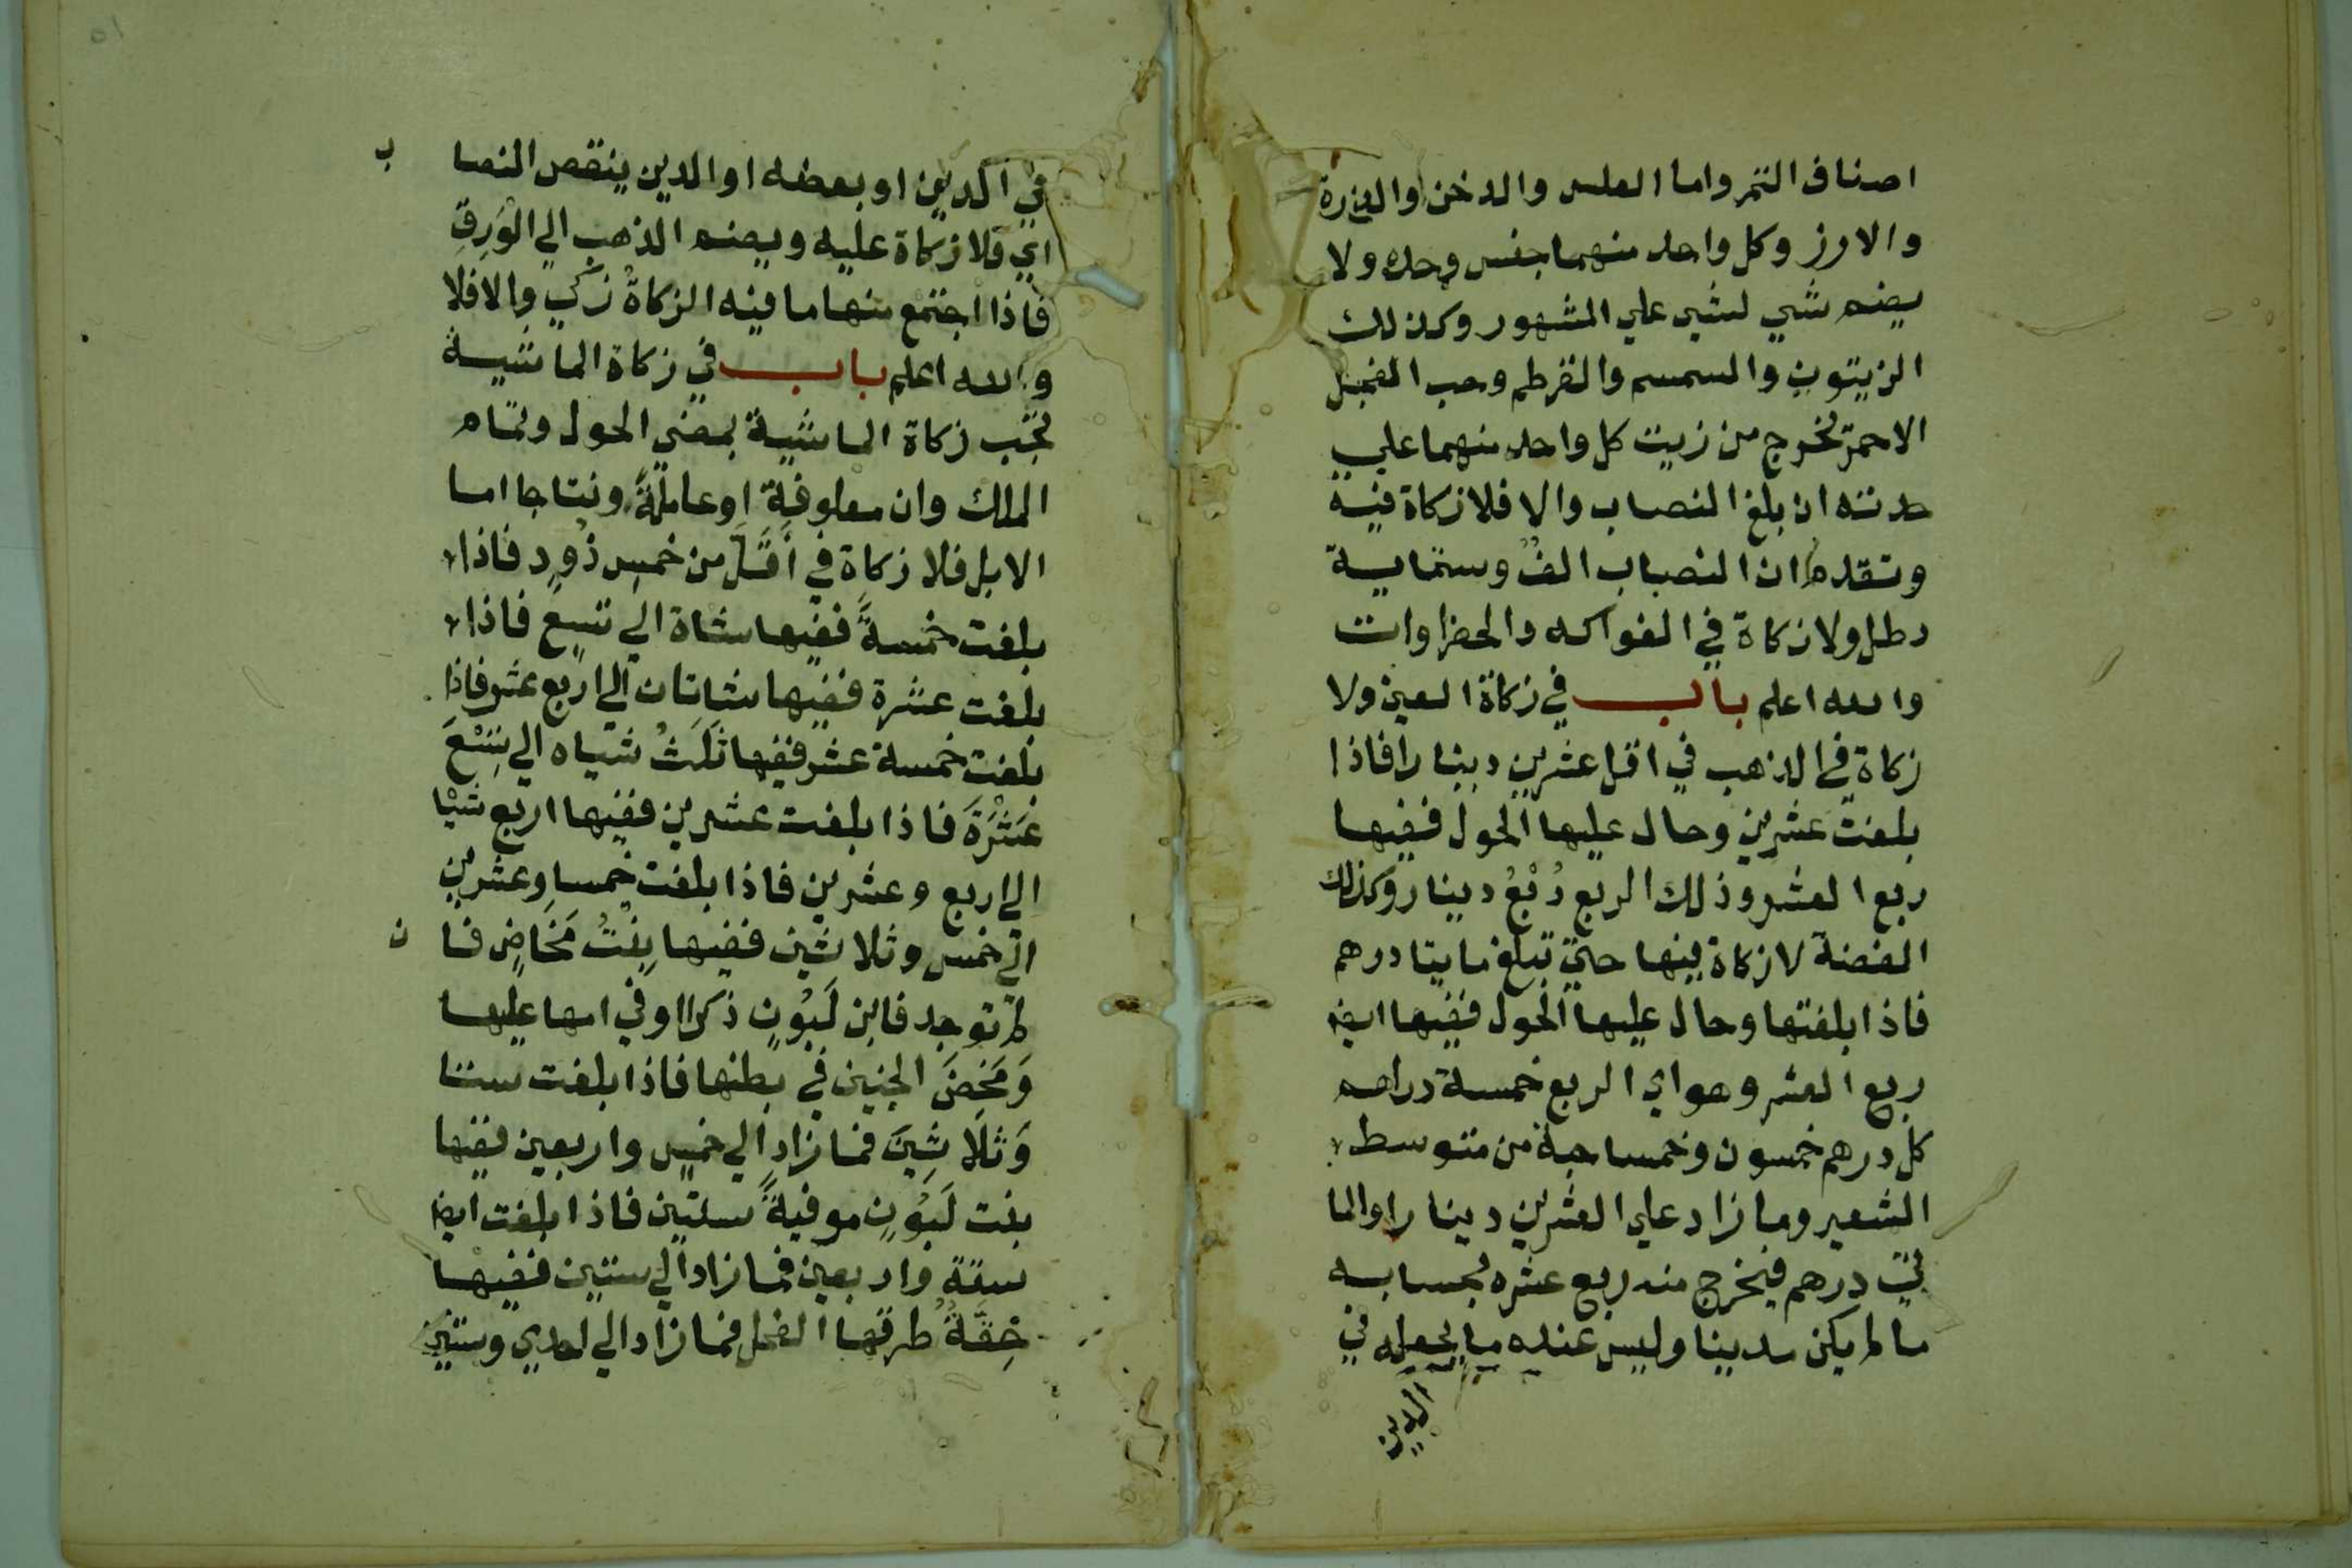 اصناف التمر واما العلس والدخن والذرة
والارز وكل واحد منهما جنس وحده ولا
يضم شي لشي علي المشهور وكذلك
الزيتون والسمسم والقرطم وحب الفجل
الاحمر تخرج من زيت كل واحد منهما علي
حدته ان بلغ النصاب والا فلا زكاة فيه
وتقدم ان النصاب الف وستماية
رطل ولا زكاة في الفواكه والخضراوات
والله اعلم باب في زكاة العين ولا
زكاة في الذهب في اقل عشرين دينارا فاذا
بلغت عشرين وحال عليها الحول ففيها
ربع العشر وذلك الربع رُبْعُ دينار وكذلك
الفضة لا زكاة فيها حتي تبلغ مايتا درهم
فاذا بلغتها وحال عليها الحول ففيها ايضا
ربع العشر وهو اي الربع خمسة دراهم
كل درهم خمسون وخمسا حبة من متوسط
الشعير وما زاد علي العشرين دينارا والما
يتي درهم فيخرج منه ربع عشره بحسابه
ما لم يكن مدينا وليس عنده ما يجعله في
الدين
في الدين او بعضه او الدين ينقص النصا ب
اي فلا زكاة عليه ويضم الذهب الي الوَرِقِ
فاذا اجتمع منها ما فيه الزكاةُ زكي والا فلا
والله اعلم باب في زكاة الماشية
تجب زكاة الماشية بمضي الحول وتمام
الملك وان معلوفة او عاملةً ونتاجا اما
الابل فلا زكاة في أقَلَّ من خمسِ ذُودٍ فاذا
بلغت خمسةً ففيها شاة الي تسع فاذا
بلغت عشرة ففيها شاتان الي اربع عشر فاذا
بلغت خمسة عشر ففيها ثَلَثُ شياه الي تِسْعَ
عَشْرَةَ فاذا بلغت عشرين ففيها اربع شيا
الي اربع وعشرين فاذا بلغت خمسا وعشرين
الي خمس وثلاثين ففيها بِنْتُ مَخَاضٍ فا ن
لم توجد فابن لَبُونٍ ذكرا او في امها عليها
وَمَخِضَ الجنين في بطنها فاذا بلغت ستا
وَثلَاثِينَ فما زاد الي خمس واربعين ففيها
بنت لَبُونٍ موفيةً سنتين فاذا بلغت ايضا
ستة واربعين فما زاد الي ستين ففيها
حِقَّةٌ طرقها الفحل فما زاد الي احدي وستين